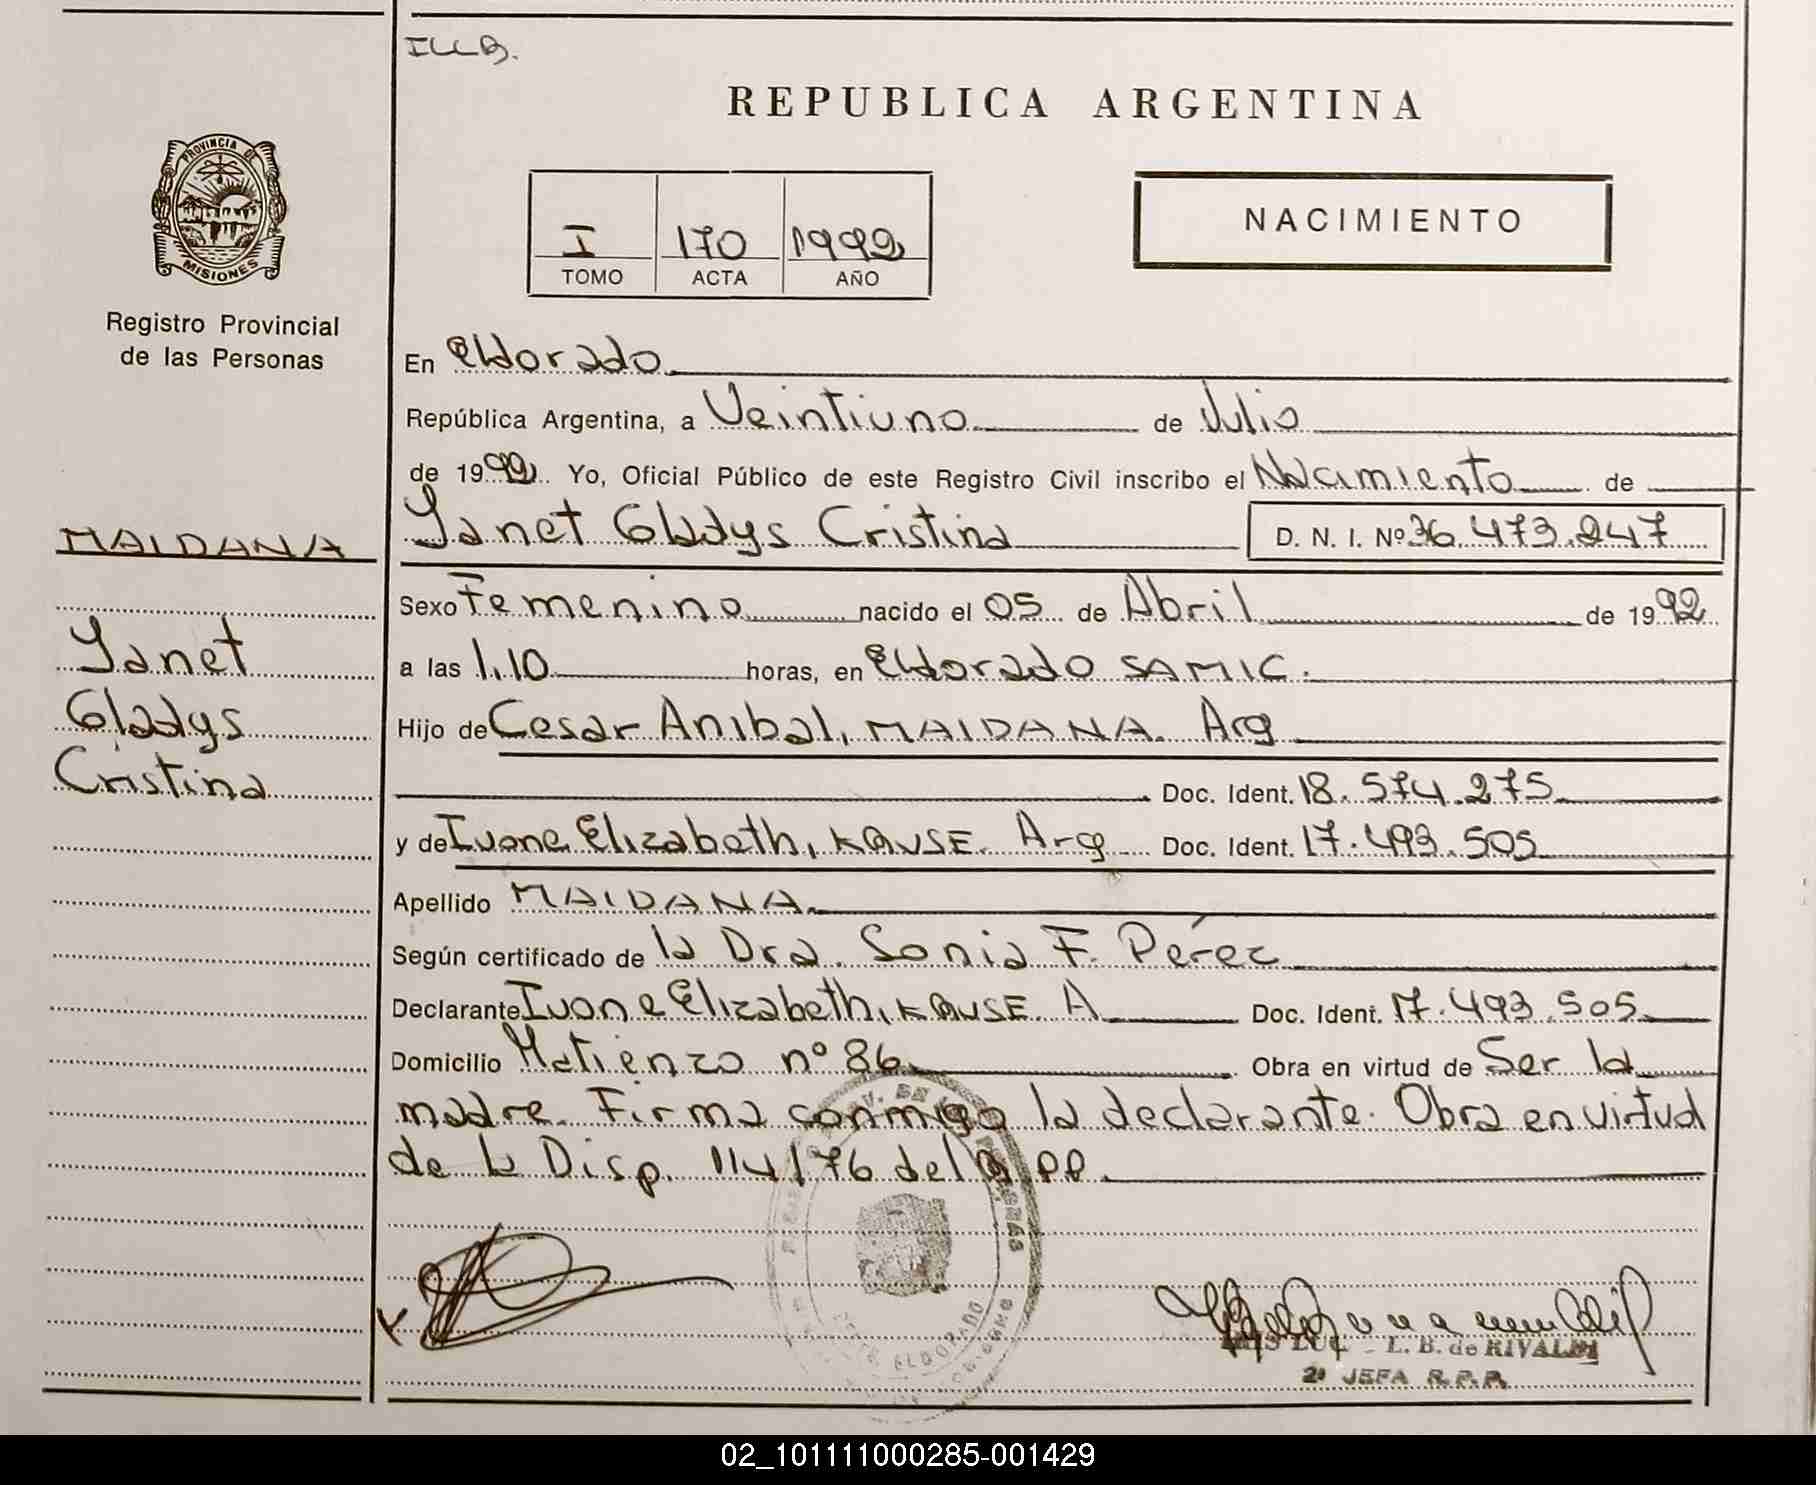 ILLB.
REPUBLICA ARGENTINA
PROVINCIA DE
MISIONES
Registro Provincial
de las Personas
I 170 1992
TOMO ACTA AÑO
NACIMIENTO
En Eldorado
República Argentina, a Veintiuno de Julio
de 1992. Yo, Oficial Público de este Registro Civil inscribo el Nacimiento de
MAIDANA
Yanet Gladys Cristina D. N. I. Nº 36.473.247
Sexo Femenino nacido el 05 de Abril de 1992
Yanet
a las 1,10 horas, en Eldorado SAMIC.
Gladys
Hijo de Cesar Anibal, MAIDANA. Arg
Cristina
Doc. Ident. 18.574.275
y de Ivone Elizabeth, KAUSE. Arg Doc. Ident. 17.493.505
Apellido MAIDANA.
Según certificado de la Dra. Sonia F. Pérez
Declarante Ivone Elizabeth, KAUSE. A Doc. Ident. 17.493.505
Domicilio Matienzo nº 86. Obra en virtud de Ser la
madre. Firma conmigo la declarante. Obra en virtud
de la Disp. 114/76 del RPP.
ELDORADO
L. B. de RIVALDI
2ª JEFA R.P.P.
02_101111000285-001429